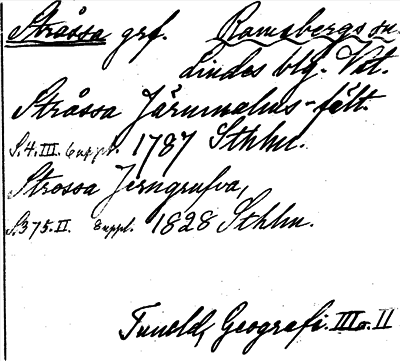 Stråssa grf. Ramsbergs sn.
Lindes blg. Vstl.
Stråssa Järnmalms-fält.
S.4.III. Suppl. 1787 Sthlm.
Strossa Jerngrufva,
S.375.II. Suppl. 1828 Sthlm.
Tuneld, Geografi. III o. II